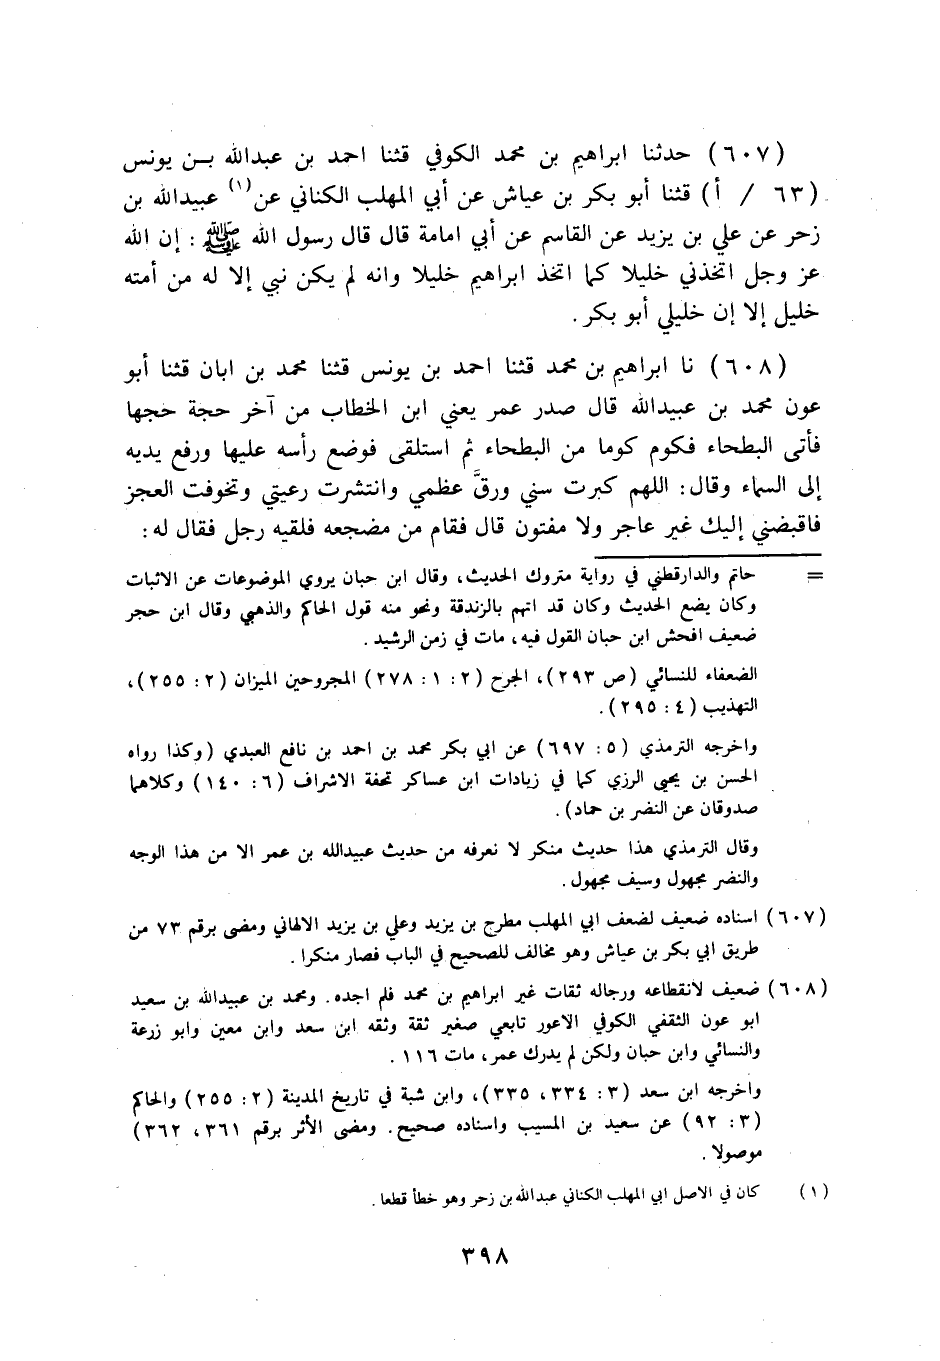 (٦٠٧) حدثنا ابراهيم بن محمد الكوفي قثنا احمد بن عبدالله بـن يونس
(٦٣ / أ) قثنا أبو بكر بن عياش عن أبي المهلب الكناني عن(١) عبيدالله بن
زحر عن علي بن يزيد عن القاسم عن أبي امامة قال قال رسول الله ﷺ : إن الله
عز وجل اتخذني خليلا كما اتخذ ابراهيم خليلا وانه لم يكن نبي إلا له من أمته
خليل إلا إن خليلي أبو بكر .
(٦٠٨) نا ابراهيم بن محمد قثنا احمد بن يونس قثنا محمد بن ابان قثنا أبو
عون محمد بن عبيدالله قال صدر عمر يعني ابن الخطاب من آخر حجة حجها
فأتى البطحاء فكوم كوما من البطحاء ثم استلقى فوضع رأسه عليها ورفع يديه
إلى السماء وقال : اللهم كبرت سني ورقَّ عظمي وانتشرت رعيتي وتخوفت العجز
فاقبضني إليك غير عاجز ولا مفتون قال فقام من مضجعه فلقيه رجل فقال له :
= حاتم والدارقطني في رواية متروك الحديث ، وقال ابن حبان يروي الموضوعات عن الاثبات
وكان يضع الحديث وكان قد اتهم بالزندقة ونحو منه قول الحاكم والذهبي وقال ابن حجر
ضعيف افحش ابن حبان القول فيه ، مات في زمن الرشيد .
الضعفاء للنسائي (ص ٢٩٣) ، الجرح (٢ : ١ : ٢٧٨) المجروحين الميزان (٢ : ٢٥٥) ،
التهذيب (٤ : ٢٩٥) .
واخرجه الترمذي (٥ : ٦٩٧) عن ابي بكر محمد بن احمد بن نافع العبدي (وكذا رواه
الحسن بن يحيى الرزي كما في زيادات ابن عساكر تحفة الاشراف (٦ : ١٤٠) وكلاهما
صدوقان عن النضر بن حماد) .
وقال الترمذي هذا حديث منكر لا نعرفه من حديث عبيدالله بن عمر الا من هذا الوجه
والنضر مجهول وسيف مجهول .
(٦٠٧) اسناده ضعيف لضعف ابي المهلب مطرح بن يزيد وعلي بن يزيد الالهاني ومضى برقم ٧٣ من
طريق ابي بكر بن عياش وهو مخالف للصحيح في الباب فصار منكرا .
(٦٠٨) ضعيف لانقطاعه ورجاله ثقات غير ابراهيم بن محمد فلم اجده . ومحمد بن عبيدالله بن سعيد
ابو عون الثقفي الكوفي الاعور تابعي صغير ثقة وثقه ابن سعد وابن معين وابو زرعة
والنسائي وابن حبان ولكن لم يدرك عمر ، مات ١١٦ .
واخرجه ابن سعد (٣ : ٣٣٤ ، ٣٣٥) ، وابن شبة في تاريخ المدينة (٢ : ٢٥٥) والحاكم
(٣ : ٩٢) عن سعيد بن المسيب واسناده صحيح . ومضى الأثر برقم ٣٦١ ، ٣٦٢)
موصولا .
(١) كان في الاصل ابي المهلب الكناني عبدالله بن زحر وهو خطأ قطعا .
٣٩٨